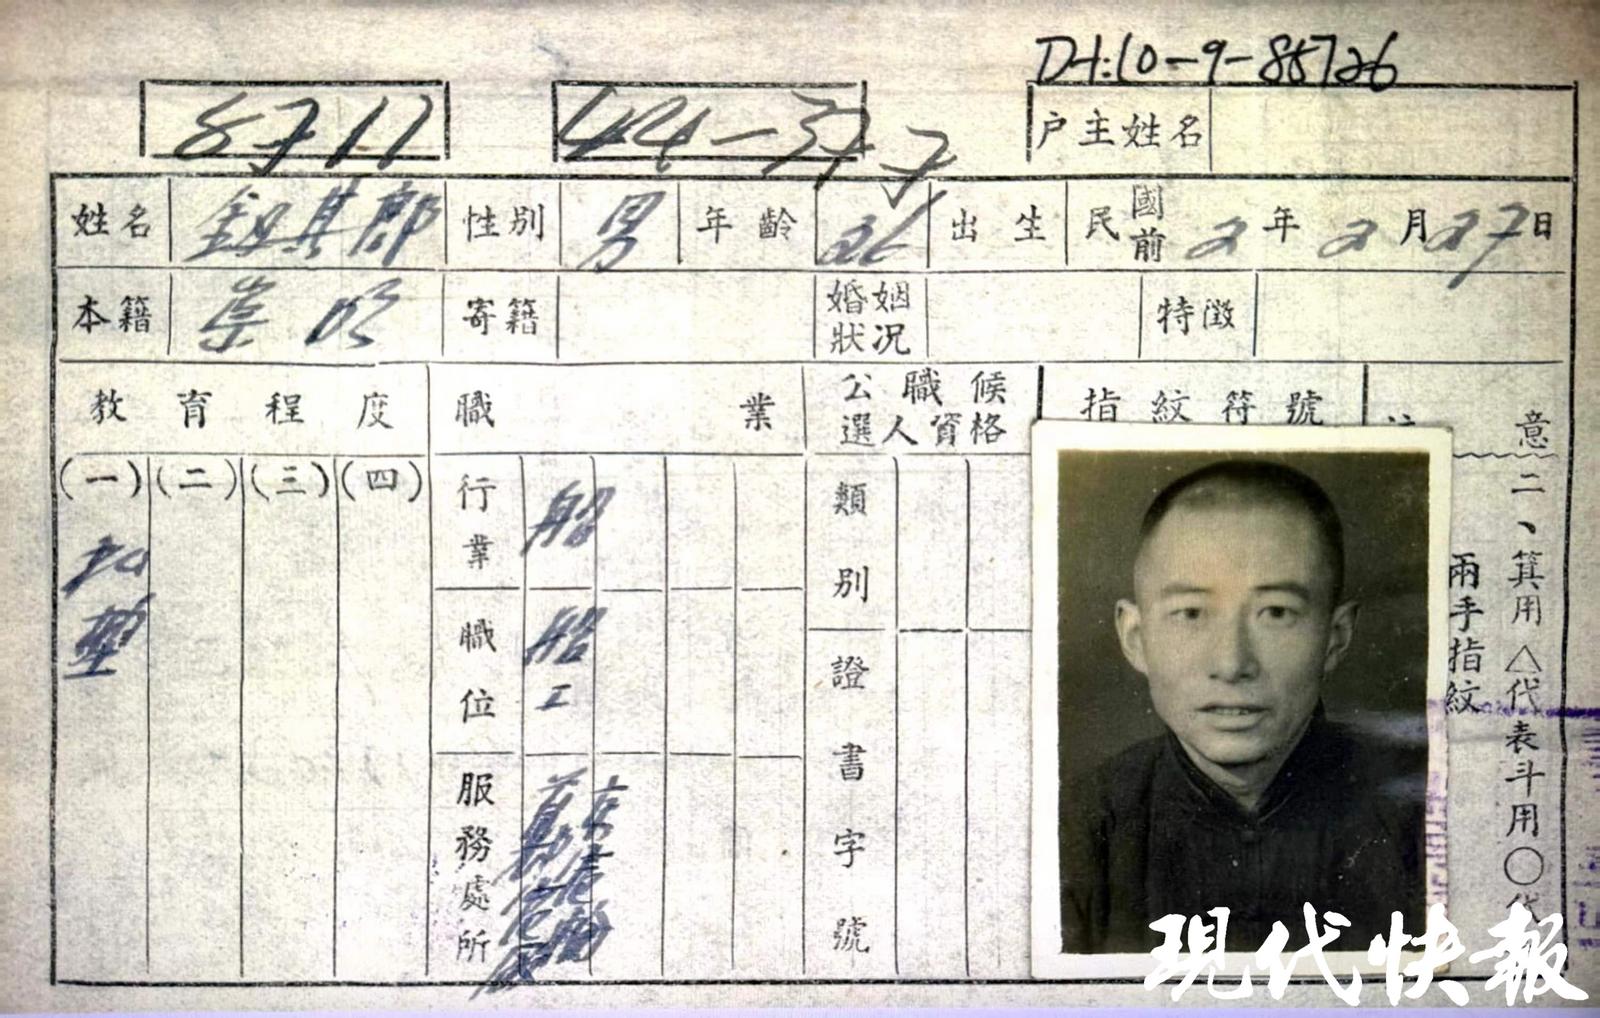 D1:10-9-88726
8711
44-377
户主姓名
姓名 鈕其郎 性别 男 年齡 36 出生 民國前 2 年 2 月 27 日
本籍 崇明 寄籍 婚姻狀况 特徵
教育程度 職業 公職候選人資格 指紋符號 意
(一) (二) (三) (四)
私塾
行業 船
職位 船工
服務處所
類别
證書字號
二、箕用△代表斗用○代
兩手指紋
現代快報